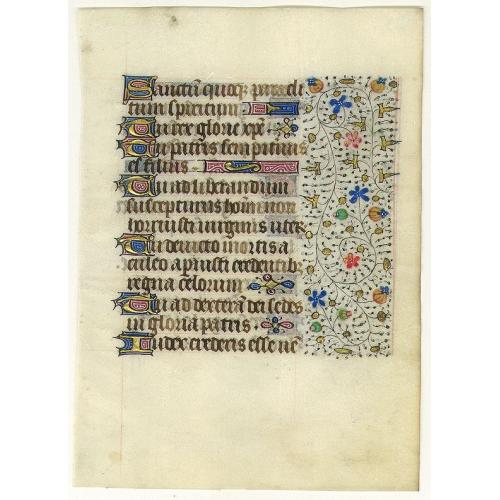 Sanctū quoq; paracli
tum spiritum.
Tu rex glorie xp̄e.
Tu patris sempiturnus
es filius.
Tu ad liberandum
suscepturus hoīem non
horruisti virginis uter
Tu deuicto mortis a
culeo apruisti credentibȝ
regna celorum.
Tu ad dexterā dei sedes
in gloria patris.
Iudex crederis esse uē